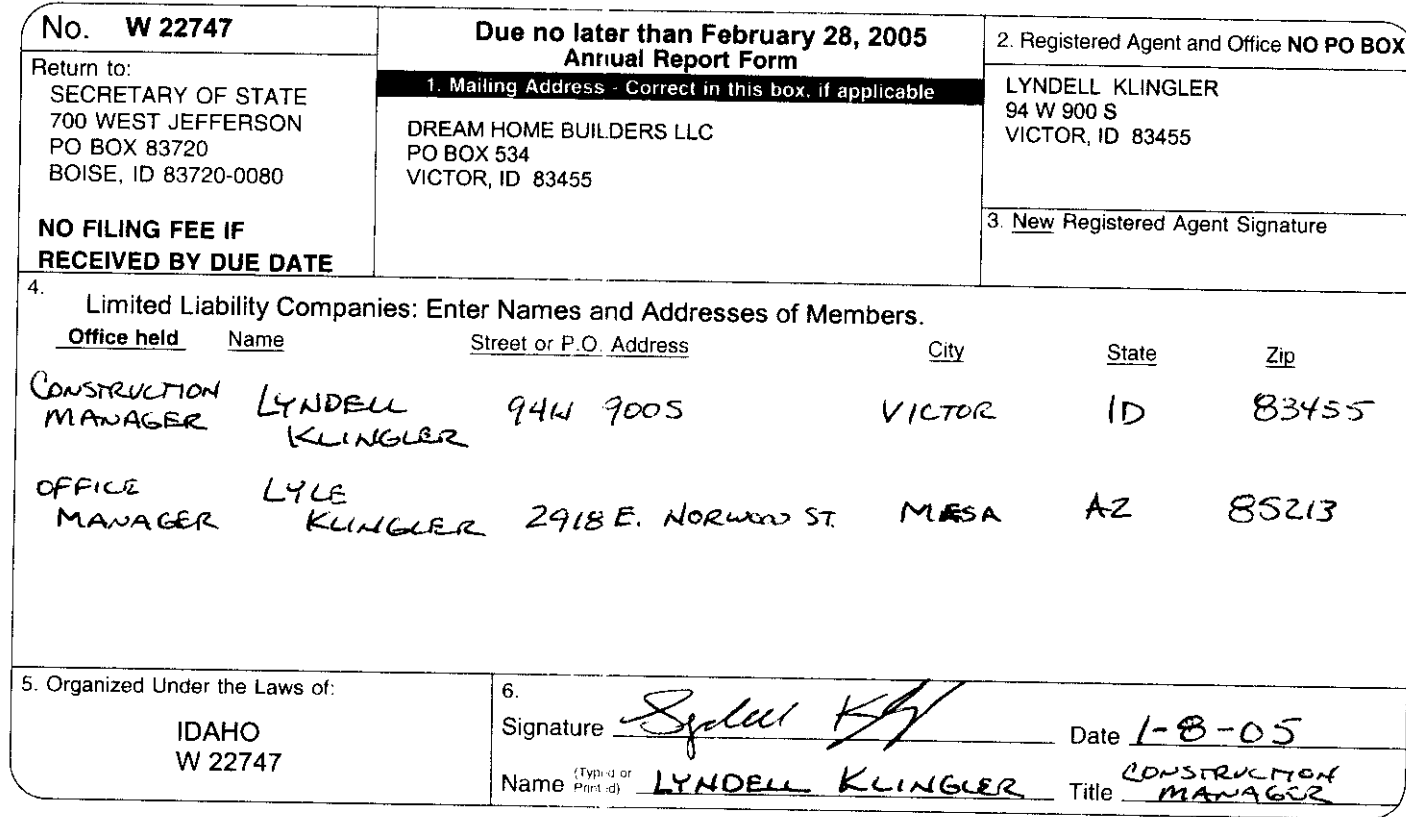 No. W 22747
Return to:
SECRETARY OF STATE
700 WEST JEFFERSON
PO BOX 83720
BOISE, ID 83720-0080
NO FILING FEE IF
RECEIVED BY DUE DATE
Due no later than February 28, 2005
Annual Report Form
1. Mailing Address - Correct in this box, if applicable
DREAM HOME BUILDERS LLC
PO BOX 534
VICTOR, ID 83455
2. Registered Agent and Office NO PO BOX
LYNDELL KLINGLER
94 W 900 S
VICTOR, ID 83455
3. New Registered Agent Signature
4.
Limited Liability Companies: Enter Names and Addresses of Members.
Office held Name Street or P.O. Address City State Zip
CONSTRUCTION MANAGER LYNDELL KLINGLER 94W 900S VICTOR ID 83455
OFFICE MANAGER LYLE KLINGLER 2918 E. NORWOOD ST. MESA AZ 85213
5. Organized Under the Laws of:
IDAHO
W 22747
6.
Signature Lyndell Date 1-8-05
Name (Typed or Printed) LYNDELL KLINGLER Title CONSTRUCTION MANAGER